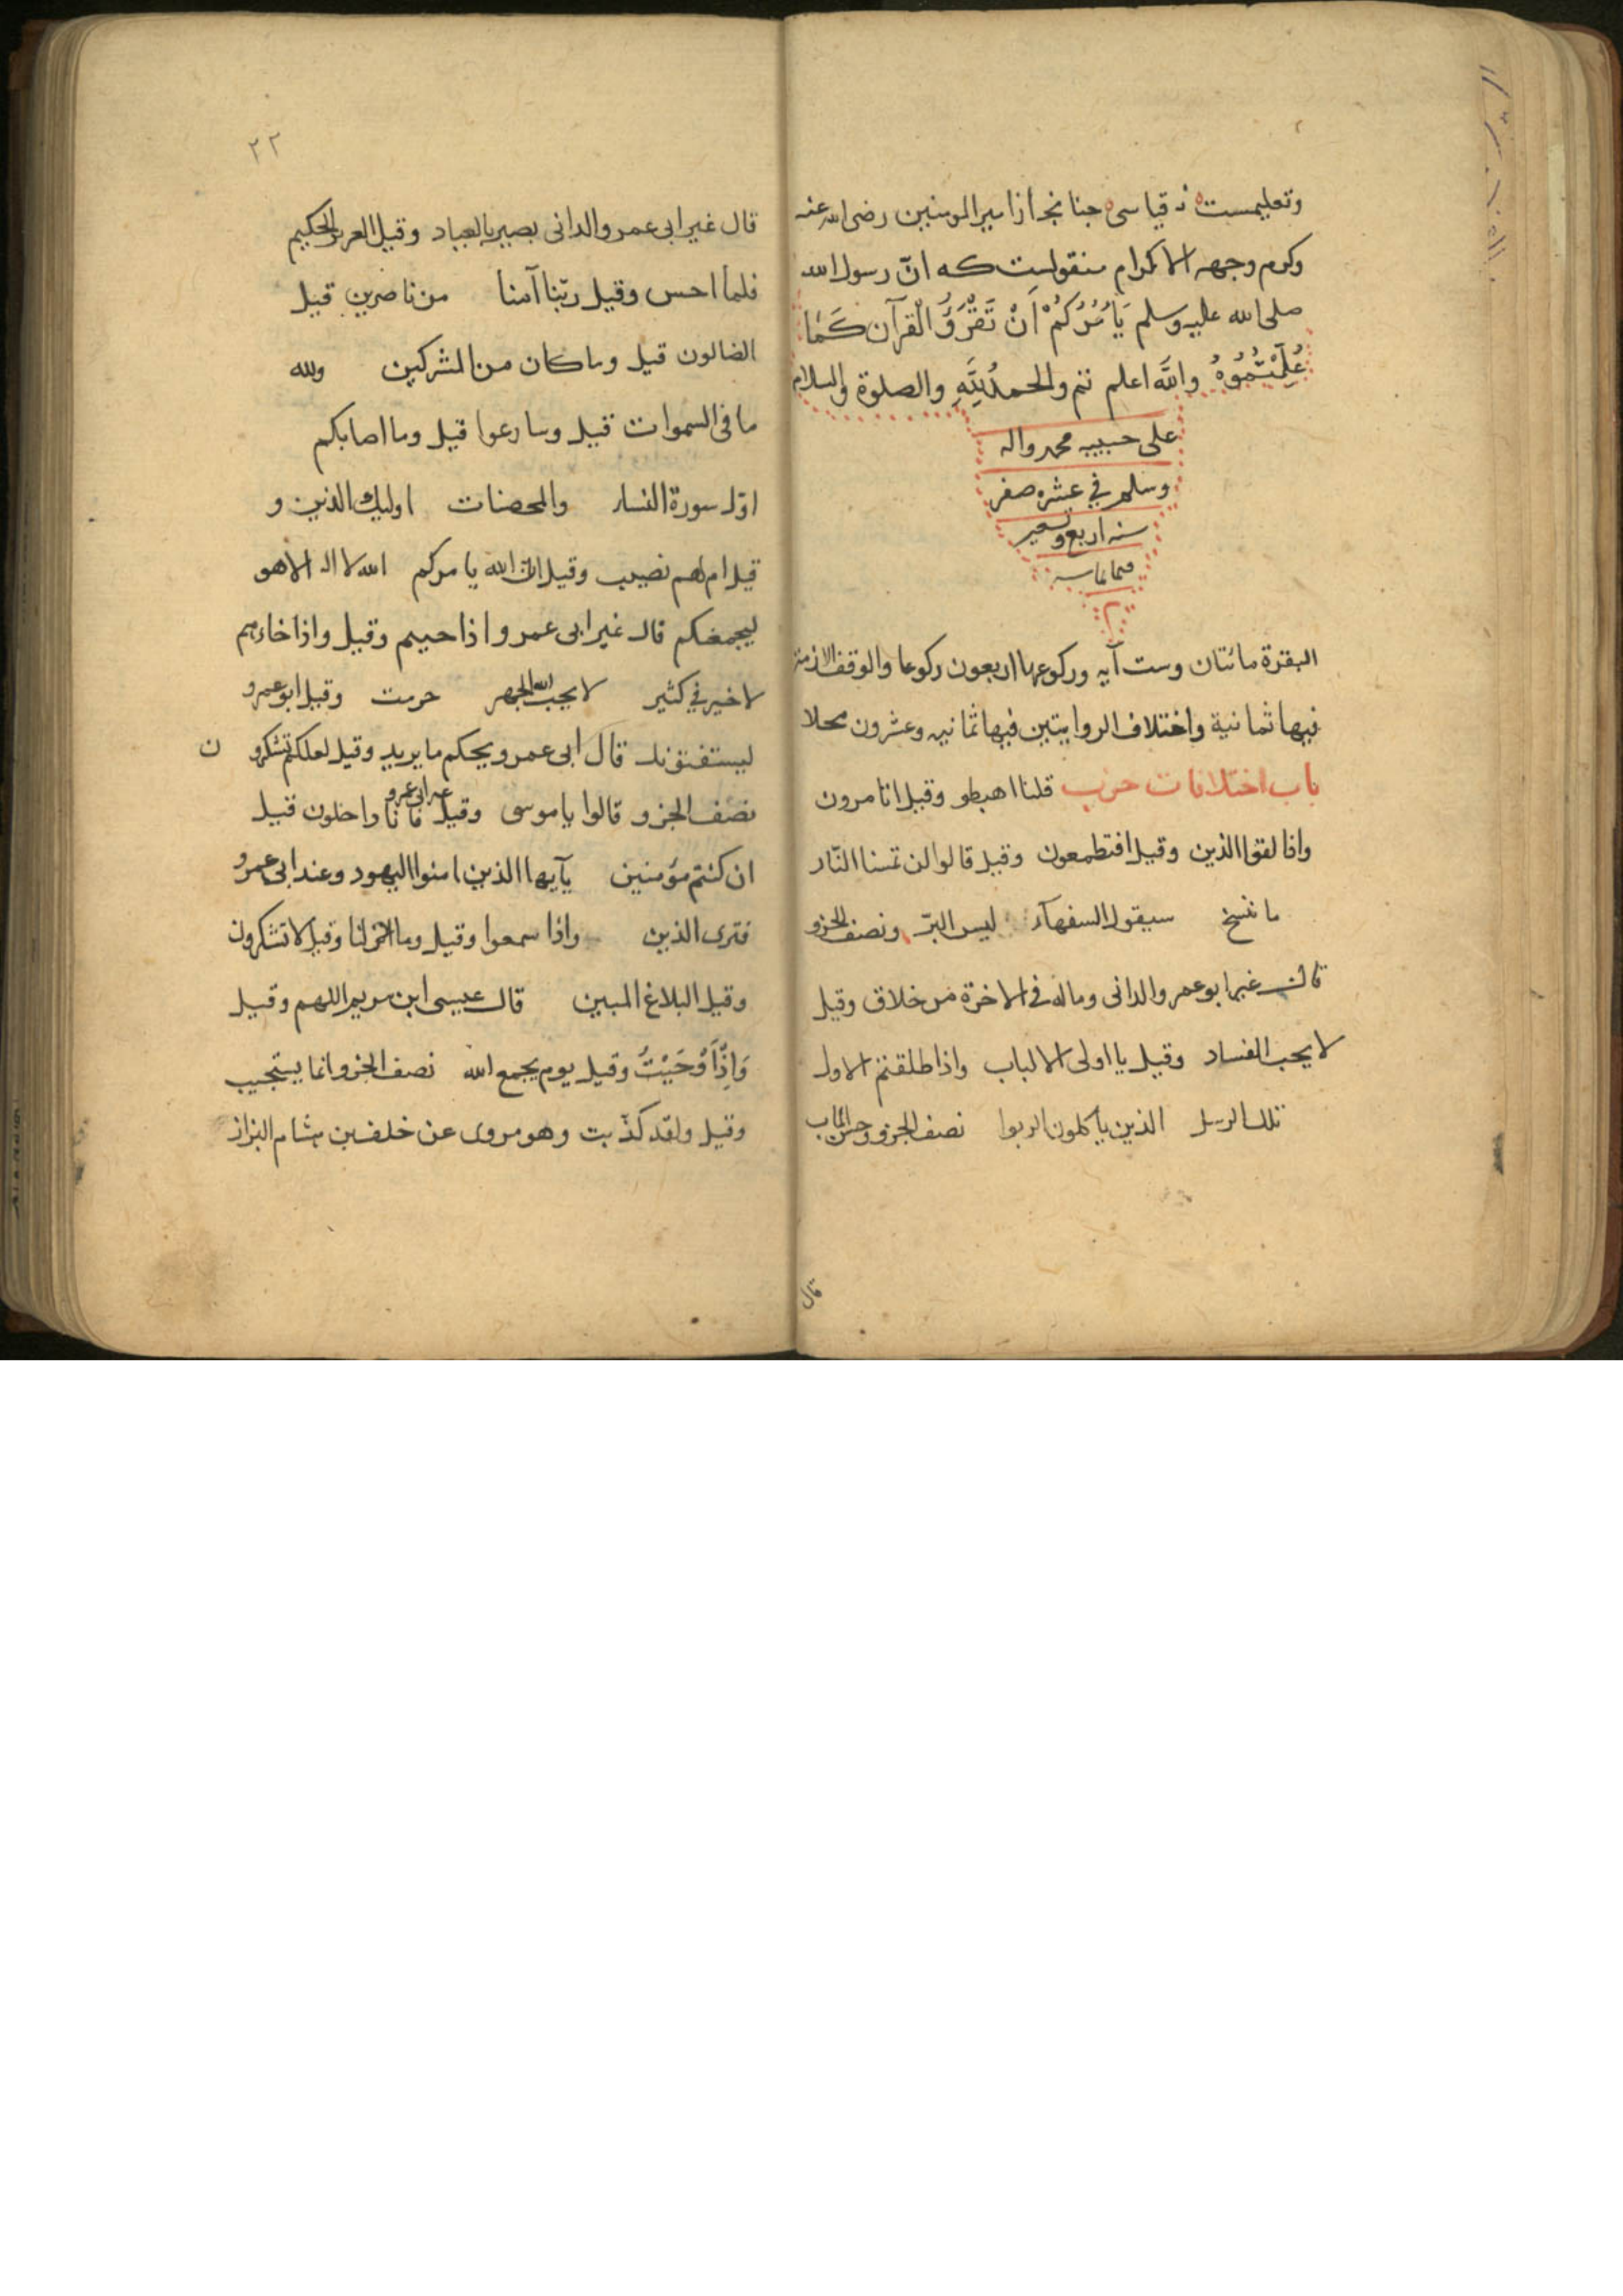 وتعليمست نه قياسى جنانجه ازامير المومنين رضى الله عنه
وكرم وجهه الاكرام منقولست كه انّ رسول الله
صلى الله عليه وسلم يَأمُرُكُمْ اَنْ تَقْرَؤُ الْقرآن كَمٰا
عُلِّمْتُمُوهُ والله اعلم تتم والحمدُ لِلّٰهِ والصلوة والسلام
على حبيبه محمد واله
وسلم في عشره صفر
سنه اربع وتسعين
وثمانمائه
البقرة مائتان وست آيه وركوعها اربعون ركوعا والوقف الازمة
فيها ثمانية واختلاف الروايتين فيها ثمانيه وعشرون محلا
باب اختلافات حزب قلنا اهبطو وقيل اتامرون
واذا لقوا الذين وقيل افتطمعون وقيل قالوا لن تمسنا النّار
ما ننسخ سيقول السفهآء ليس البرّ ونصف الجزو
قال غير ابو عمرو الدانى وماله فى الاخرة من خلاق وقيل
لا يحب الفساد وقيل يا اولى الالباب واذا طلقتم الاول
تلك الرسل الذين ياكلون الربوا نصف الجزو وحسن الماب
قال
٢٢
قال غير ابى عمرو الدانى بصير بالعباد وقيل العزيز الحكيم
فلما احس وقيل ربّنا آمنا من ناصرين قيل
الضالون قيل وما كان من المشركين ولله
ما فى السموات قيل وسارعوا قيل وما اصابكم
اوّل سورة النساء والمحصنات اوليك الذين و
قيل ام لهم نصيب وقيل انّ الله يامركم الله لا اله الا هو
ليجمعنكم قال غير ابى عمرو اذا حييتم وقيل واذا جاءهم
لا خير فى كثير لا يحب الله الجهر حرمت وقيل ابو عمرو
ليستفتونك قال ابى عمرو يحكم ما يريد وقيل لعلكم تشكرون
نصف الجزو قالوا ياموسى وقيل عن ابى عمرو فانا داخلون قيل
ان كنتم مؤمنين يآيها الذين امنوا اليهود وعند ابى عمرو
فترى الذين واذا سمعوا وقيل وما انزلنا وقيل لا تشكرون
وقيل البلاغ المبين قال عيسى ابن مريم اللهم وقيل
وَاِذْ اَوْحَيْتُ وقيل يوم يجمع الله نصف الجزو انما يستجيب
وقيل ولقد كذّبت وهو مروى عن خلف بن هشام البزاز